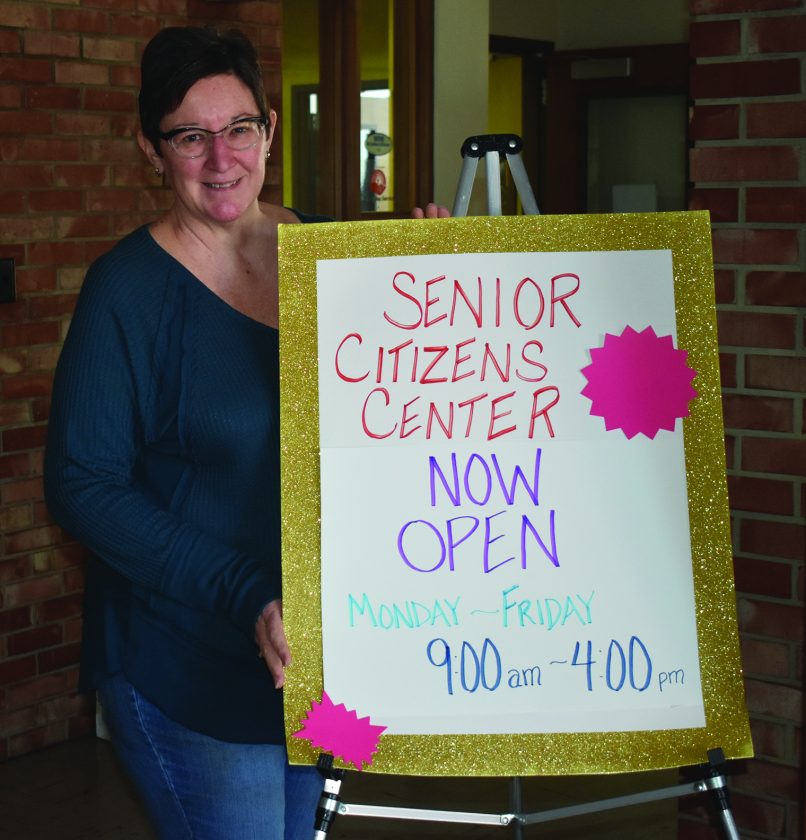 SENIOR
CITIZENS
CENTER
NOW
OPEN
MONDAY ~ FRIDAY
9:00 am ~ 4:00 pm